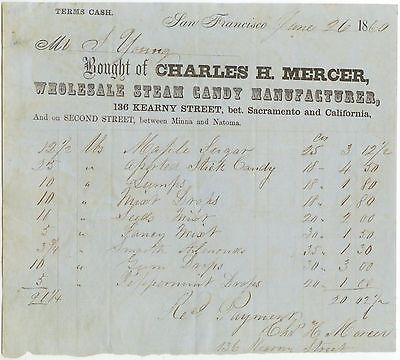 TERMS CASH.
San Francisco June 26 1860
Mr S Young
Bought of CHARLES H. MERCER,
WHOLESALE STEAM CANDY MANUFACTURER,
136 KEARNY STREET, bet. Sacramento and California,
And on SECOND STREET, between Minna and Natoma.
12 1/2 lbs Maple Sugar 25 3 12 1/2
25 " Stick Candy 18 4 50
10 " Lumps 18 1 80
10 " Mixt Drops 18 1 80
10 " Mixt 20 2 00
5 " Fancy Mixt 30 1 50
3 3/4 " Smooth Almonds 35 1 30
10 " Gum Drops 30 3 00
5 " Peppermint Drops 20 1 00
91 1/4 20 02 1/2
Recd Payment
Chas H. Mercer
136 Kearny Street